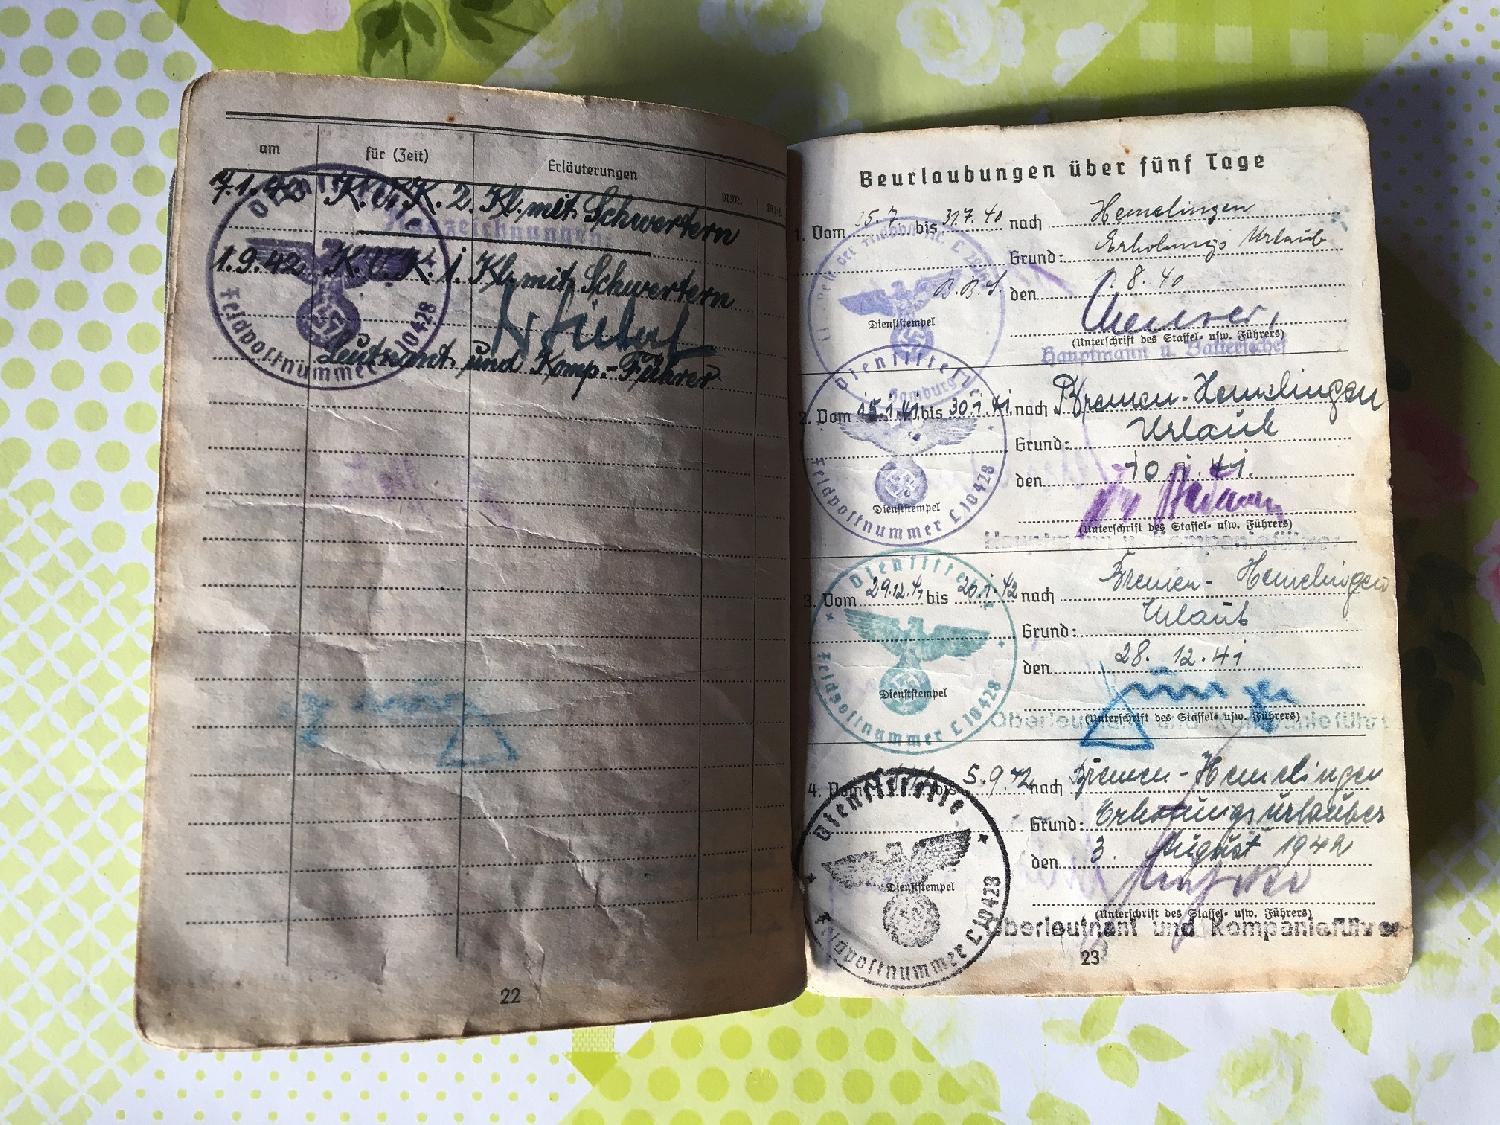 am für (Zeit) Erläuterungen
K.V.K. 2. Kl. mit Schwertern
1.9.42 K.V.K. 1. Kl. mit Schwertern
Feldpostnummer L 10428
Leutnant und Komp.-Führer
22
Beurlaubungen über fünf Tage
1. Vom bis 31.7.40 nach Hemelingen
Grund: Erholungs Urlaub
den 8.40
Dienststempel
(Unterschrift des Staffel- usw. Führers)
Hauptmann u. Batteriechef
Dienststelle
2. Vom 15.1.41 bis 30.1.41 nach Bremen-Hemelingen
Grund: Urlaub
den 10.1.41.
Dienststempel
Feldpostnummer L 10428
(Unterschrift des Staffel- usw. Führers)
Hauptmann Kompanieführer
Dienststelle
3. Vom 29.12.41 bis 20.1.42 nach Bremen-Hemelingen
Grund: Urlaub
den 28.12.41
Dienststempel
Feldpostnummer L 10428
(Unterschrift des Staffel- usw. Führers)
Oberleutnant und Kompanieführer
Dienststelle
4. Vom bis 5.9.42 nach Bremen-Hemelingen
Grund: Erholungsurlauber
den 3. August 1942
Dienststempel
Feldpostnummer L 10428
(Unterschrift des Staffel- usw. Führers)
Oberleutnant und Kompanieführer
23